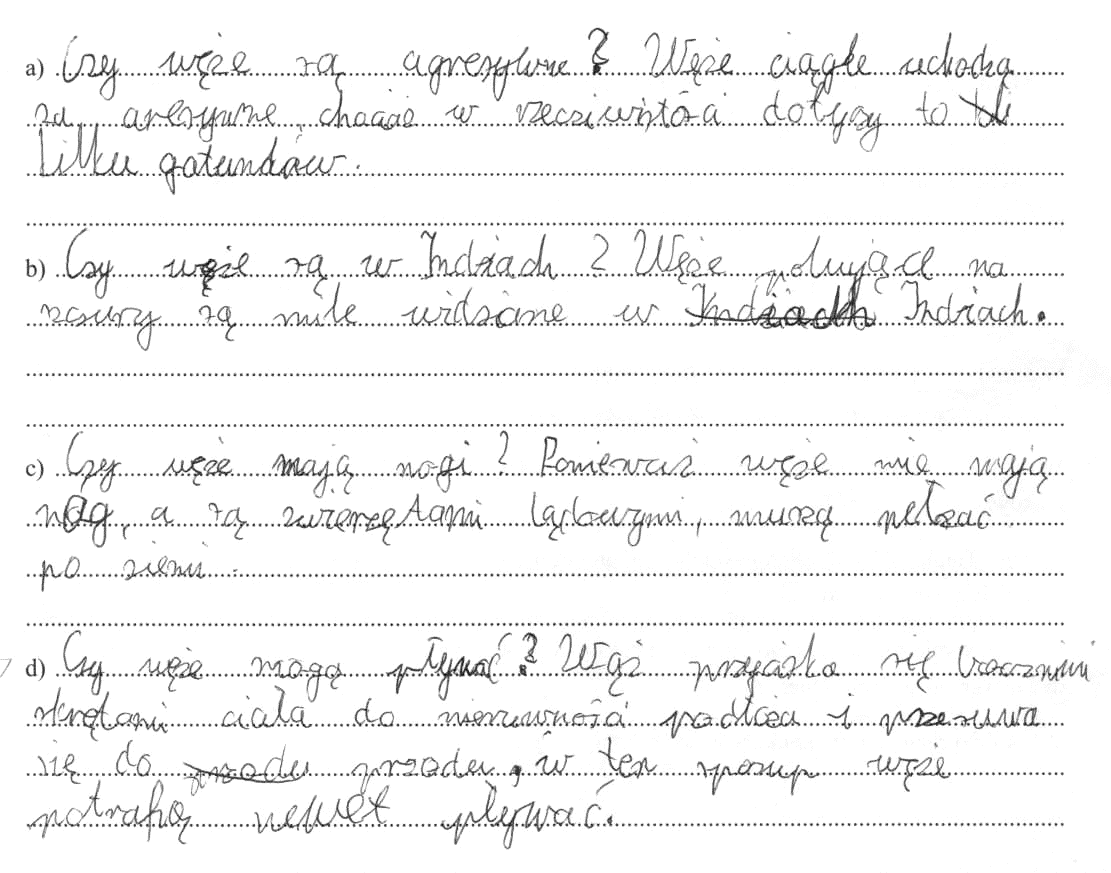 a) Czy węże są agresywne? Węże ciągłe uchodzą
za aresywne, chociaż w rzecziwistości dotyszy to
kilku gatundów.
b) Czy węże są w Indiach? Węże polujące na
szczury są mile widziane w Indiach Indiach.
c) Czy węże mają nogi? Ponieważ węże nie mają
nóg, a są zwierzętami lądowymi, muszą pełzać
po ziemi.
d) Czy węże mogą płynać? Wąż przyciska się bocznymi
skrętami ciała do nierówności podłoża i przesuwa
się do przodu, w ten sposup węże
potrafią newet pływać.